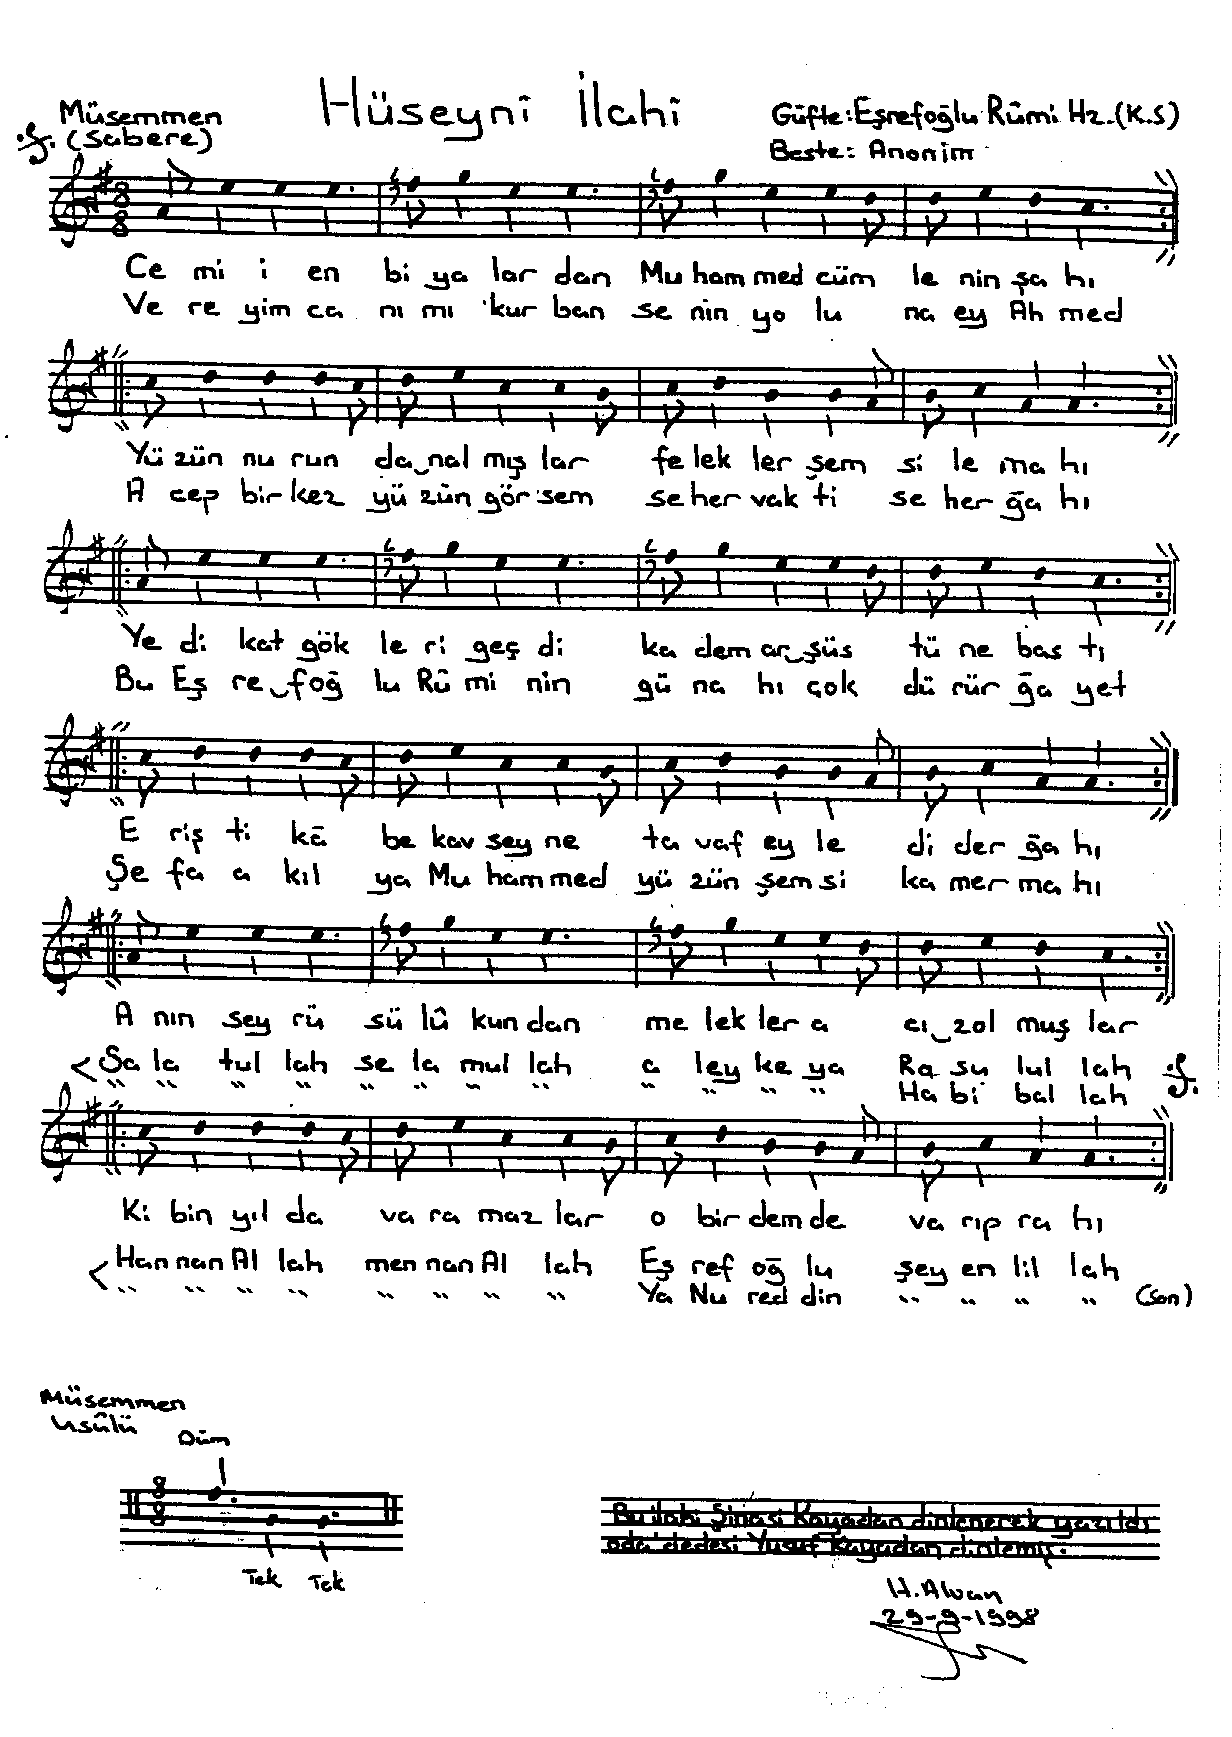 Hüseynî İlahî
Müsemmen
(Sabere)
Güfte: Eşrefoğlu Rûmi Hz.(K.S)
Beste: Anonim
8
8
Ce mi i en bi ya lar dan Mu ham med cüm le nin şa hı
Ve re yim ca nı mı kur ban se nin yo lu na ey Ah med
Yü zün nu run da nal mış lar fe lek ler şem si le ma hı
A cep bir kez yü zün gör sem se her vak ti se her ğa hı
Ye di kat gök le ri geç di ka dem ar şüs tü ne bas tı
Bu Eş re foğ lu Rû mi nin gü na hı çok dü rür ğa yet
E riş ti kā be kav sey ne ta vaf ey le di der ğa hı
Şe fa a kıl ya Mu ham med yü zün şem si ka mer ma hı
A nın sey rü sü lû kun dan me lek ler a ci zol muş lar
Sa la tul lah se la mul lah a ley ke ya Ra su lul lah
" " " " " " " " " " " " Ha bi bal lah
Ki bin yıl da va ra maz lar o bir dem de va rıp ra hı
Han nan Al lah men nan Al lah Eş ref oğ lu şey en lil lah
" " " " " " " " Ya Nu red din " " " " (Son)
Müsemmen
Usûlü
Düm
8
8
Tek Tek
Bu ilahi Şinasi Kayadan dinlenerek yazıldı
oda dedesi Yusuf Kayadan dinlemiş.
H. Alvan
29-9-1998